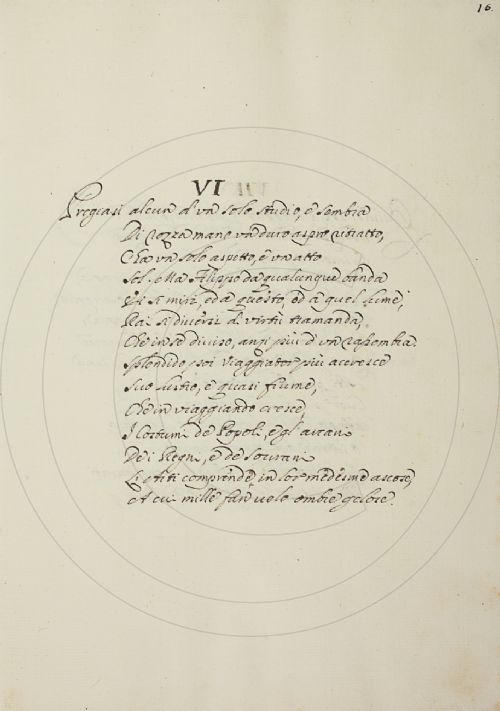 16.
VI
Pregiasi alcun d'un solo studio, e sembra
Di rozza mano un duro aspro ritratto,
C'ha un solo aspetto, e un atto
Sol. Ma Filippo da qualunque banda
Ei si miri, ed a questo, ed a quel lume,
Rai sì diversi di virtù tramanda,
Che in se diviso, anzi più d'un rassembra.
Splendido poi viaggiator più accresce
Suo lustro, e quasi fiume,
Che in viaggiando cresce,
I Costumi de' Popoli, e gl'arcani
De i Regni, e de' Sovrani
Li stati comprende in lor medesme ascose,
A cui mille fan velo ombre gelose.